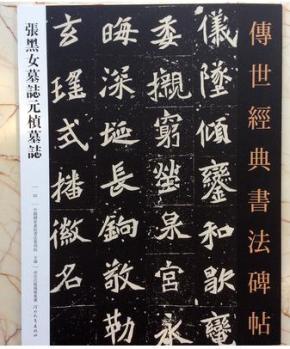 傳世經典書法碑帖
儀墜傾鑾和歇鸞
委櫬窮塋泉宮永
晦深埏長鉤敬勒
玄瑤式播徽名
張黑女墓誌元楨墓誌